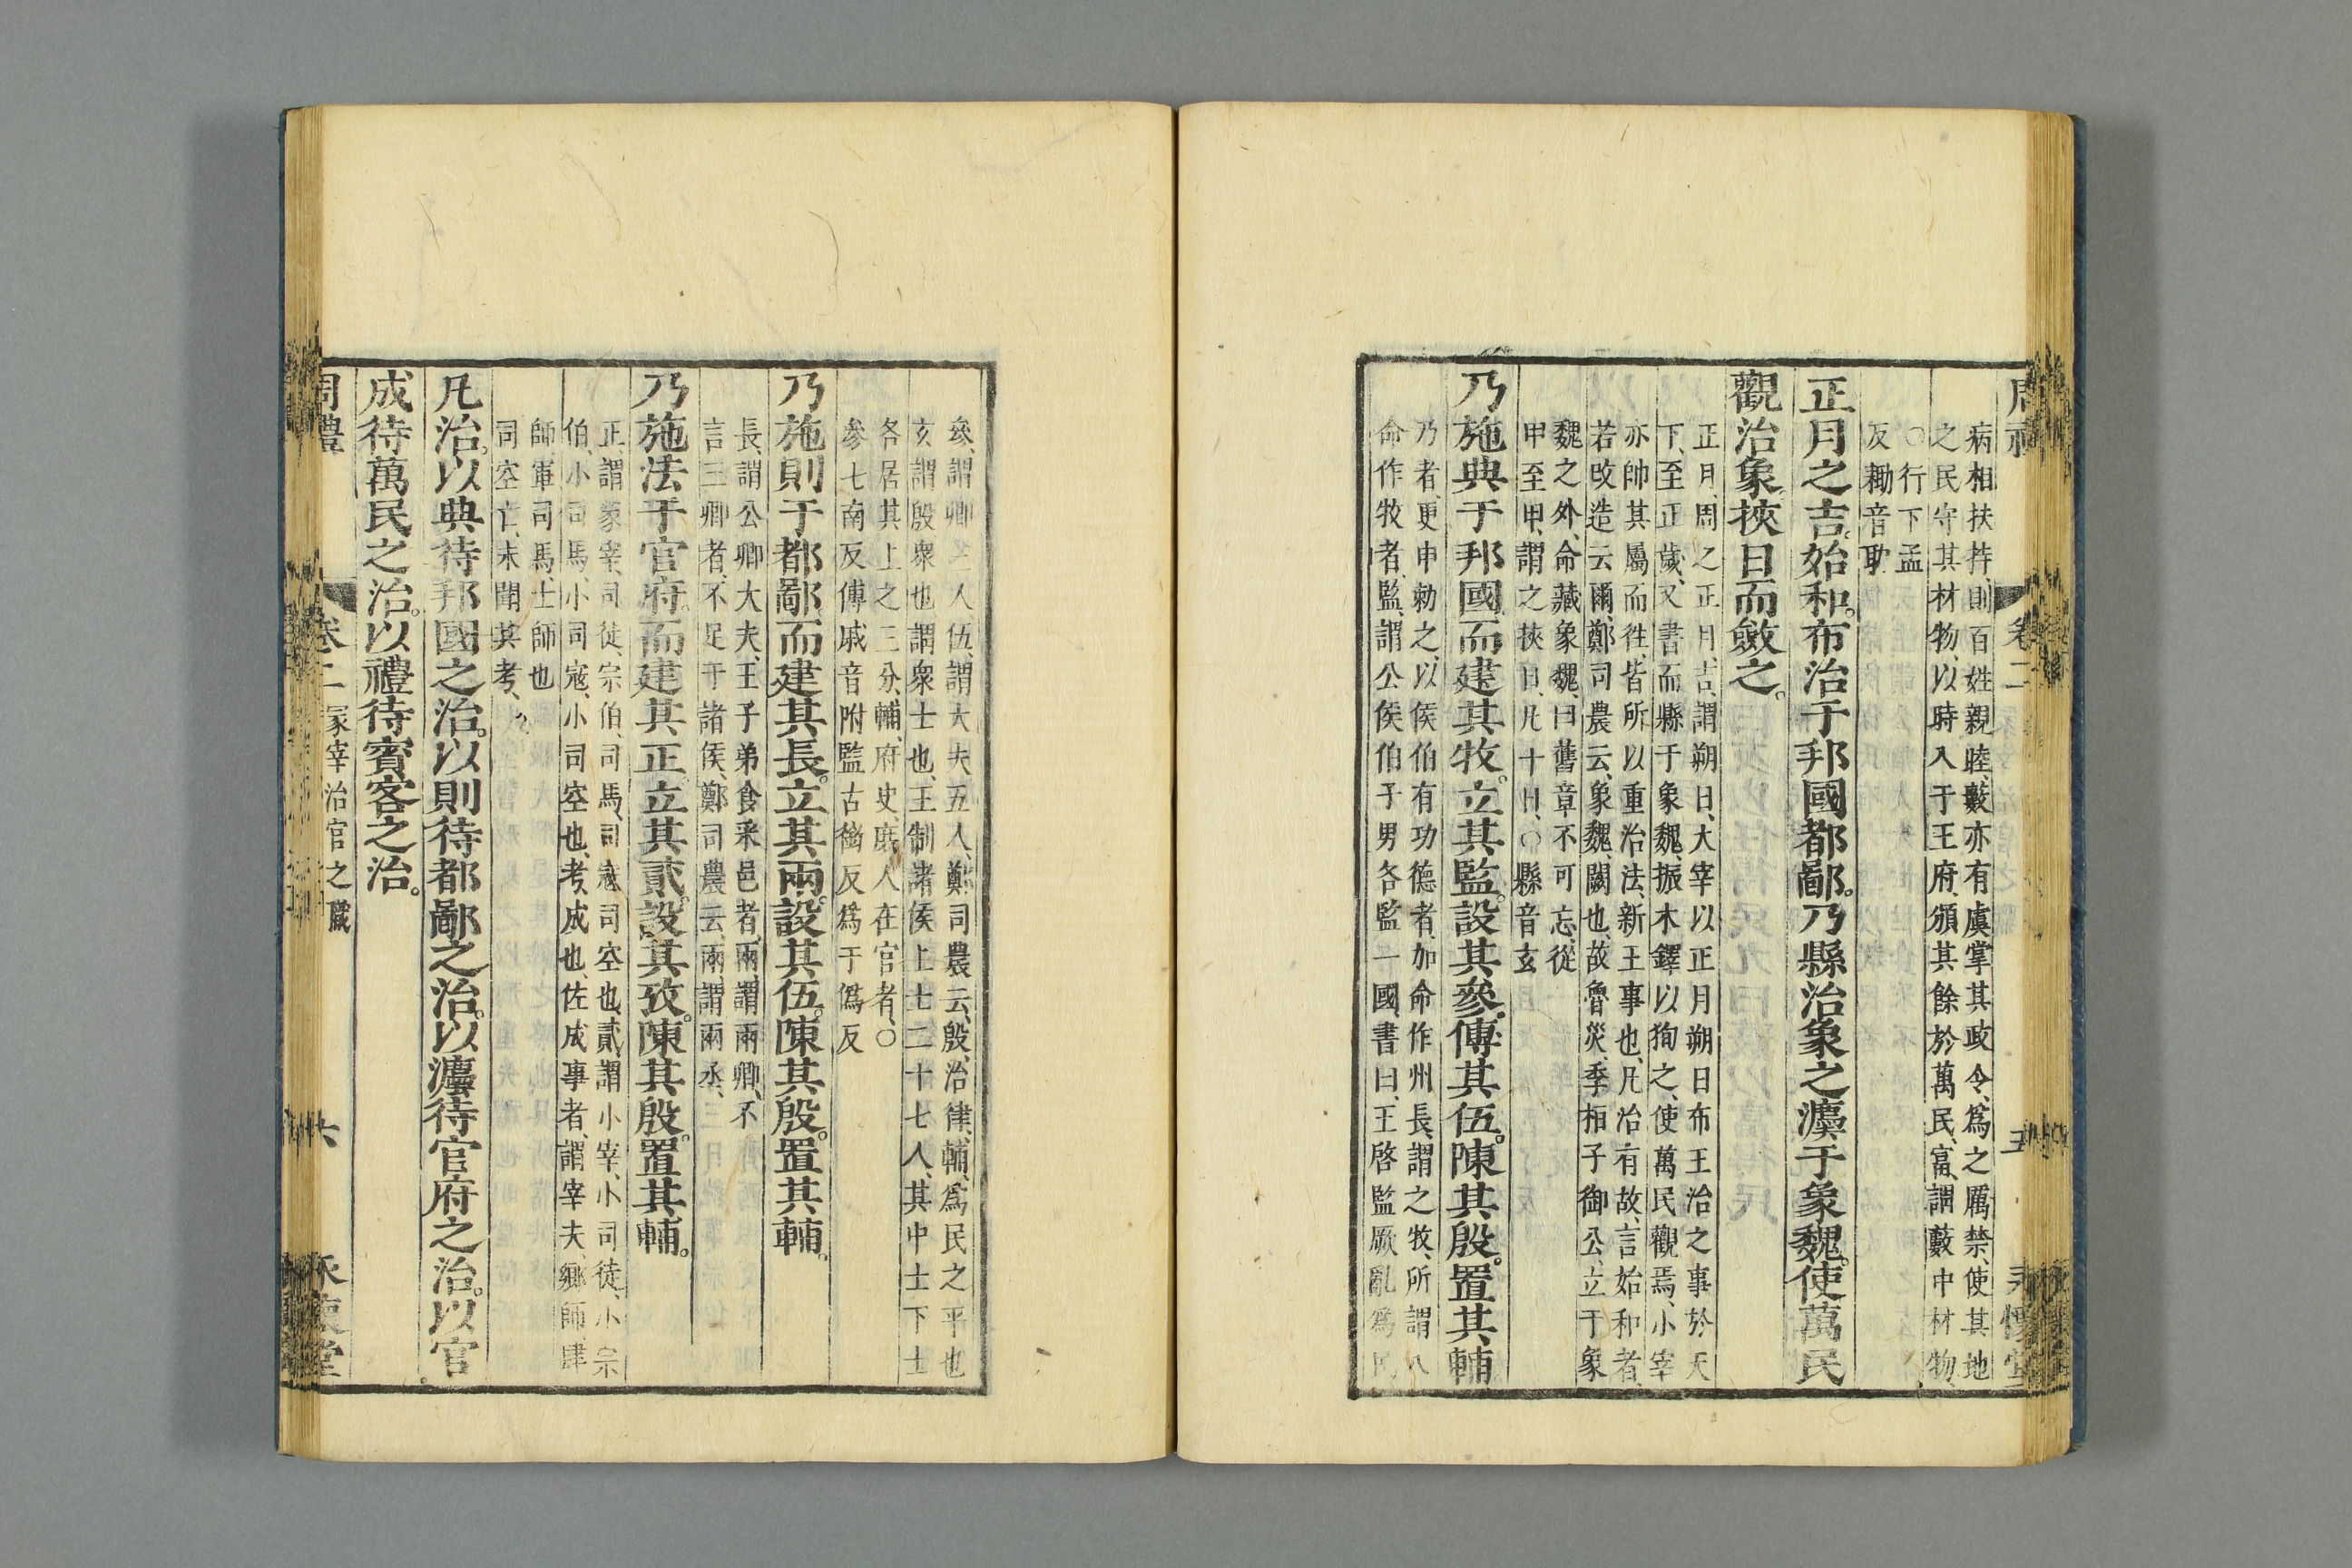 周禮 卷二 五 永懷堂
病相扶持、則百姓親睦、藪亦有虞掌其政令、爲之厲禁、使其地
之民守其材物、以時入于王府、頒其餘於萬民、富謂藪中材物、
○行下孟
反耡音助
正月之吉。始和。布治于邦國都鄙。乃縣治象之灋于象魏。使萬民
觀治象。挾日而斂之。
正月、周之正月、吉、謂朔日、大宰以正月朔日布王治之事於天
下、至正歲、又書而縣于象魏、振木鐸以狥之、使萬民觀焉、小宰
亦帥其屬而徃、皆所以重治法、新王事也、凡治有故、言始和者、
若改造云爾、鄭司農云、象魏、闕也、故魯災、季桓子御公、立于象
魏之外、命藏象魏、曰舊章不可忘、從
甲至甲、謂之挾日、凡十日、○縣音玄
乃施典于邦國。而建其牧。立其監。設其參。傅其伍。陳其殷。置其輔
乃者、更申勑之、以侯伯有功德者、加命作州長、謂之牧、所謂八
命作牧者、監、謂公侯伯子男各監一國、書曰、王啓監厥亂爲民
參、謂卿三人、伍、謂大夫五人、鄭司農云、殷、治律、輔、爲民之平也
玄謂殷衆也、謂衆士也、王制諸侯上士二十七人、其中士下士
各居其上之三分、輔、府史、庶人在官者、○
參七南反傅戚音附監古銜反爲于僞反
乃施則于都鄙。而建其長。立其兩。設其伍。陳其殷。置其輔。
長、謂公卿大夫、王子弟食采邑者、兩、謂兩卿、不
言三卿者、不足于諸侯、鄭司農云、兩謂兩丞、
乃施法于官府。而建其正。立其貳。設其攷。陳其殷。置其輔。
正、謂冢宰、司徒、宗伯、司馬、司寇、司空也、貳、謂小宰、小司徒、小宗
伯、小司馬、小司寇、小司空也、考、成也、佐成事者、謂宰夫、鄉師、肆
師、軍司馬、士師也
司空亡、未聞其考、
凡治。以典待邦國之治。以則待都鄙之治。以灋待官府之治。以官
成待萬民之治。以禮待賓客之治。
周禮 卷二 冢宰治官之職 六 永懷堂